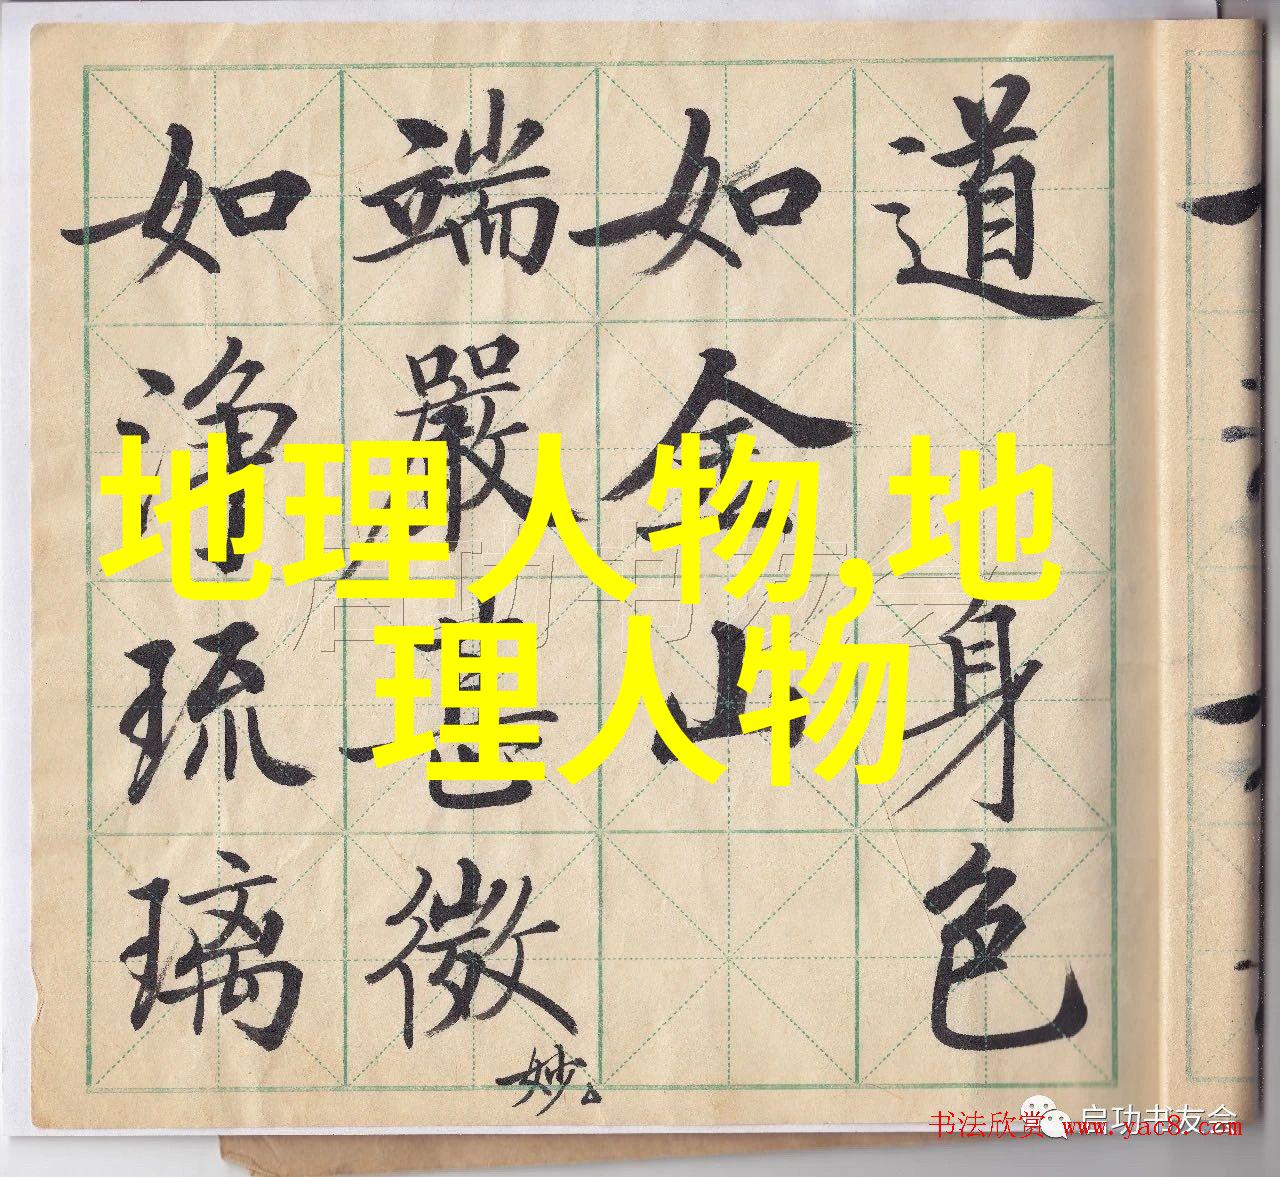 道身色
如金山
端嚴甚微妙
如淨琉璃
地理人物,地
理人物
启功书友会
启功书友会
书法欣赏 www.yac8.com